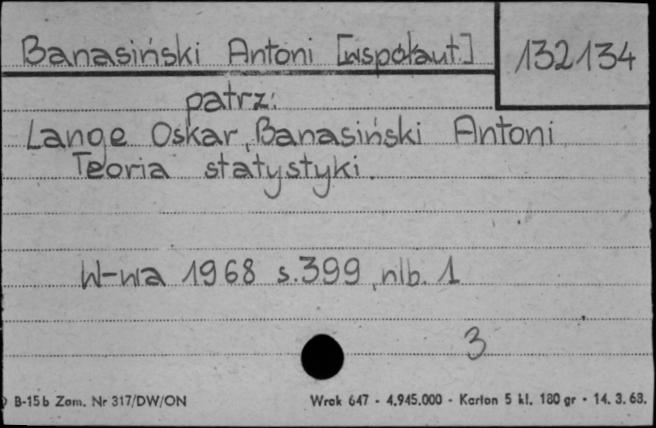 Banasiński Antoni [współaut.]
132134
patrz:
Lange Oskar, Banasiński Antoni
Teoria statystyki.
W-wa 1968 s.399, nlb. 1
3
B-15b Zam. Nr 317/DW/ON
Wrok 647 - 4.945.000 - Karton 5 kl. 180 gr - 14. 3. 68.